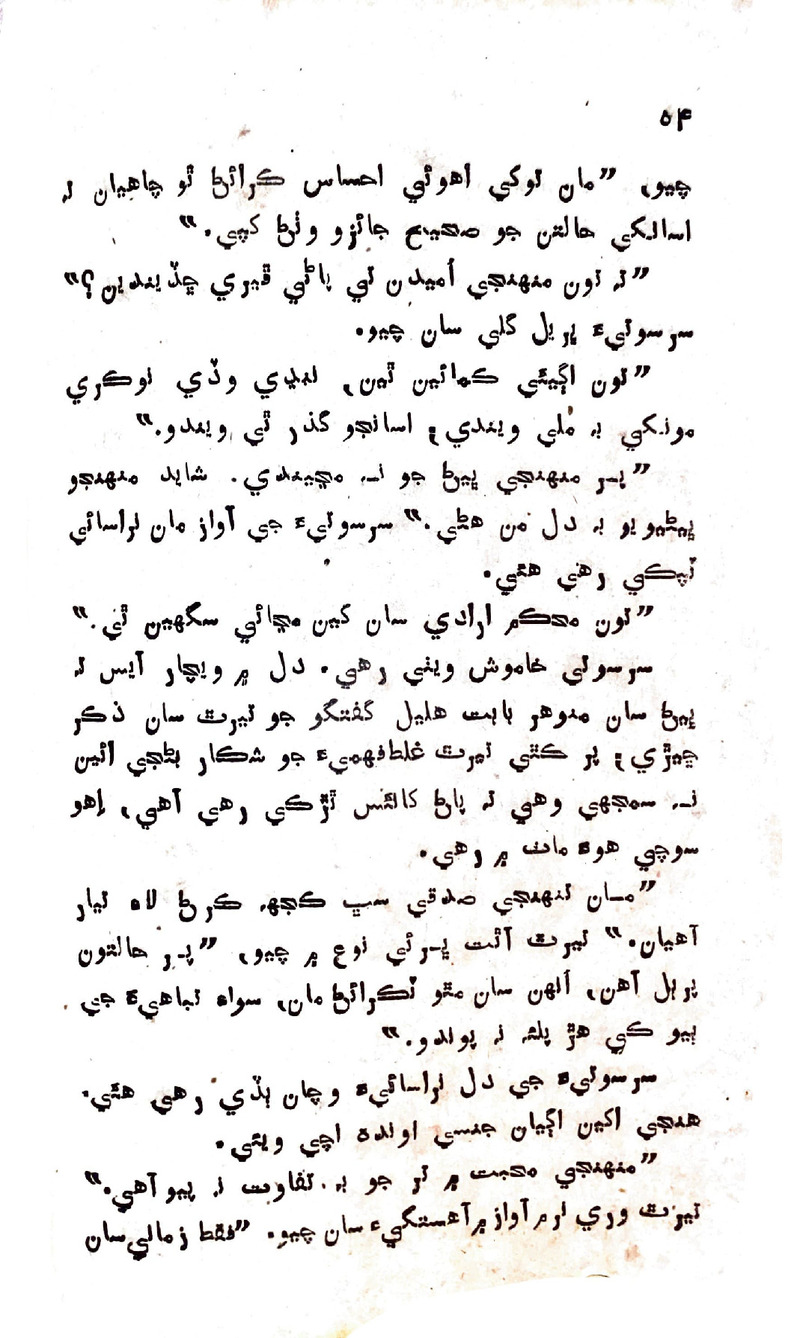 ۵۴
چيو، ”مان توکي اهوئي احساس ڪرائڻ ٿو چاهيان تہ
اسانکي حالتن جو صحيح جائزو وٺڻ کپي.“
”تہ تون منهنجي اُميدن تي پاڻي ڦيري ڇڏيندين؟“
سرسوتيءَ ڀريل گلي سان چيو.
”تون اڳيئي ڪمائين ٿين، ننڍي وڏي نوڪري
مونکي بہ مُلي ويندي ۽ اسانجو گذر ٿي ويندو.“
”پر منهنجي ڀيڻ جو نہ مڃيندي. شايد منهنجو
ڀيڻيويو بہ دل من هڻي.“ سرسوتيءَ جي آواز مان نراسائي
ٽپڪي رهي هئي.
”تون محڪم ارادي سان کين مڃائي سگهين ٿي.“
سرسوتي خاموش ويٺي رهي. دل ۾ ويچار آيس تہ
ڀيڻ سان منوهر بابت هليل گفتگو جو تيرٿ سان ذڪر
ڇيڙي؛ پر ڪٿي تيرٿ غلطفهميءَ جو شڪار بڻجي ائين
نہ سمجهي وهي تہ پاڻ کائنس ٿڙڪي رهي آهي، اِهو
سوچي هوءَ ماٺ ۾ رهي.
”مان تنهنجي صدقي سڀ ڪجهہ ڪرڻ لاءِ تيار
آهيان.“ تيرٿ آٿت ڀرئي نوع ۾ چيو، ”پر حالتون
پربل آهن، اُنهن سان مٿو ٽڪرائڻ مان، سواءِ تباهيءَ جي
ٻيو ڪي هڙ پلئہ نہ پوندو.“
سرسوتيءَ جي دل نراسائيءَ وچان ٻڏي رهي هئي.
هنجي اکين اڳيان جنسي اونده اچي ويئي.
”منهنجي محبت ۾ تر جو بہ تفاوت نہ پيو آهي.“
تيرٿ وري نرم آواز ۾ آهستگيءَ سان چيو. ”فقط زماني سان